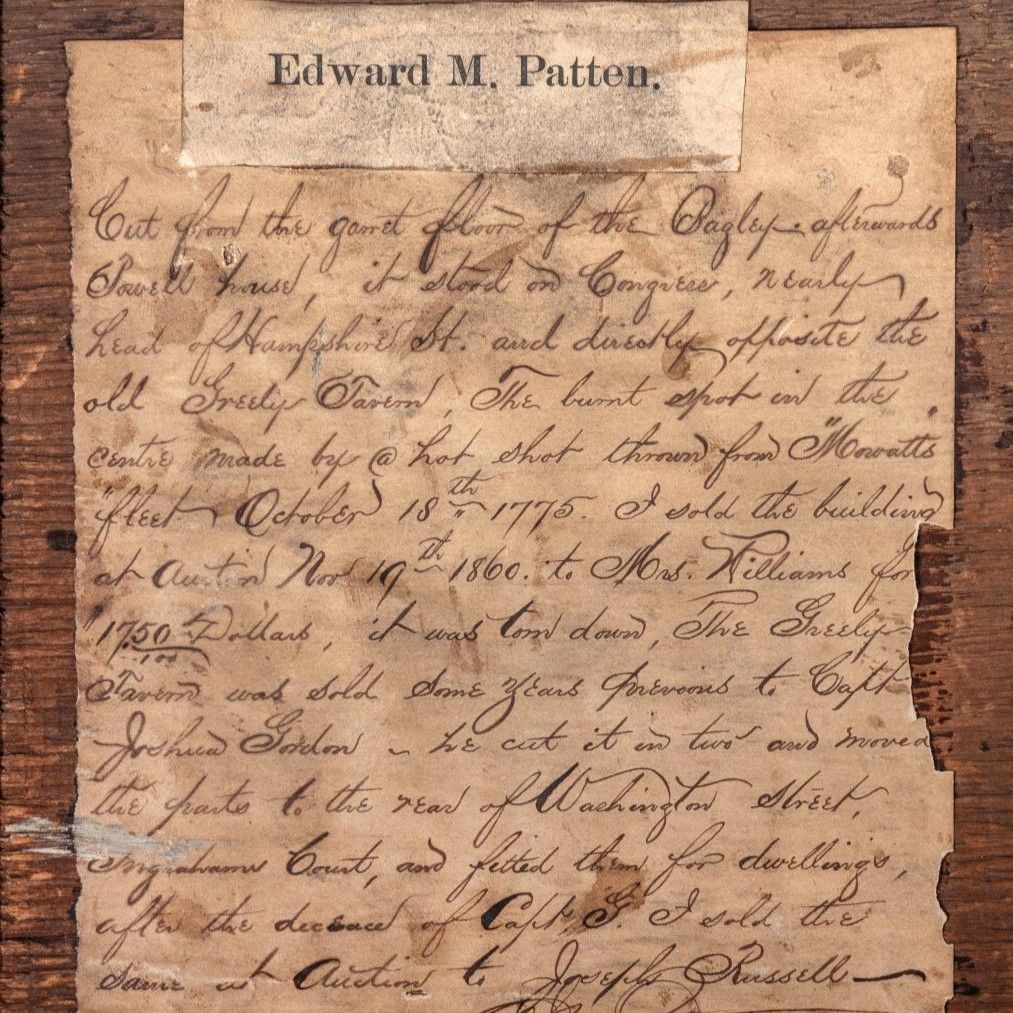 Edward M. Patten.
Cut from the garret floor of the Bagley afterwards
Powell house, it stood on Congress, nearly
head of Hampshire St. and directly opposite the
old Greely Tavern, The burnt spot in the
centre made by @ hot shot thrown from "Mowatts"
"fleet October 18th 1775. I sold the building
at Auction Nov 19th 1860. to Mrs. Williams for
"17.50/100 Dollars, it was torn down, The Greely
Tavern was sold some years prevoous to Capt
Joshua Gordon ~ he cut it in two and moved
the parts to the rear of Washington street,
Ingrahams Court, and fitted them for dwellings,
after the decease of Capt. G. I sold the
same at Auction to Joseph Russell —